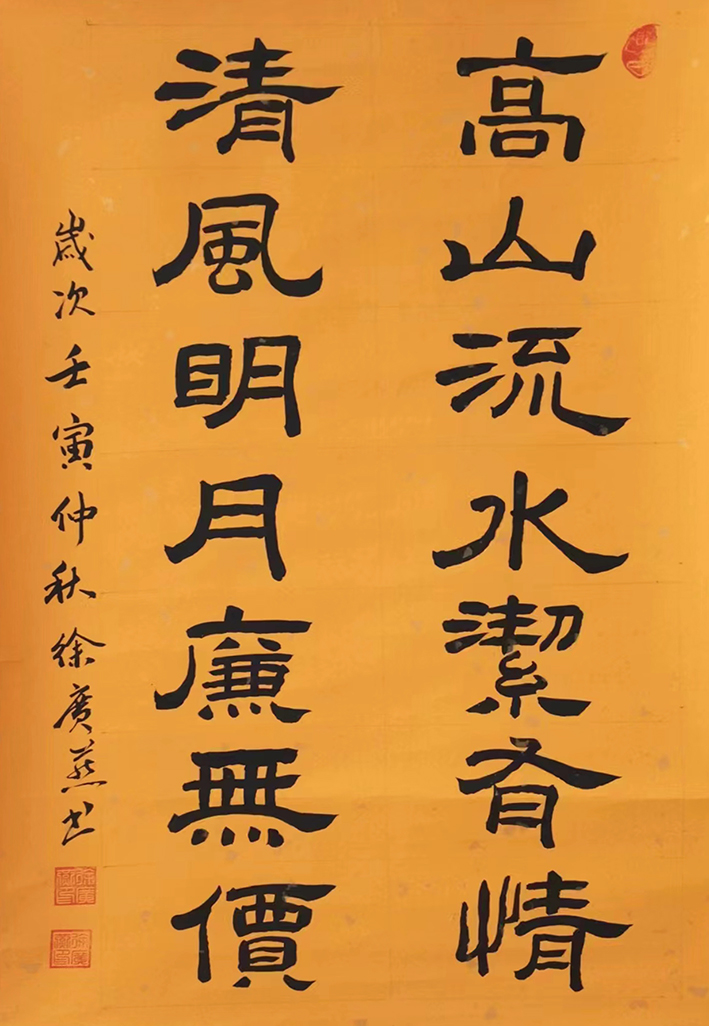 高山流水潔有情
清風明月廉無價
歲次壬寅仲秋徐廣燕書